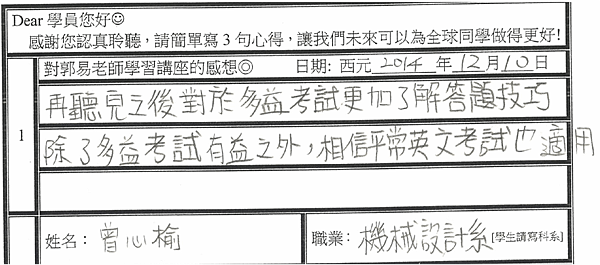 Dear 學員您好☺
感謝您認真聆聽，請簡單寫 3 句心得，讓我們未來可以為全球同學做得更好!
對郭易老師學習講座的感想◎ 日期: 西元 2014 年 12 月 10 日
1
再聽見之後對於多益考試更加了解答題技巧
除了多益考試有益之外，相信平常英文考試也適用
姓名: 曾心榆 職業: 機械設計系 [學生請寫科系]